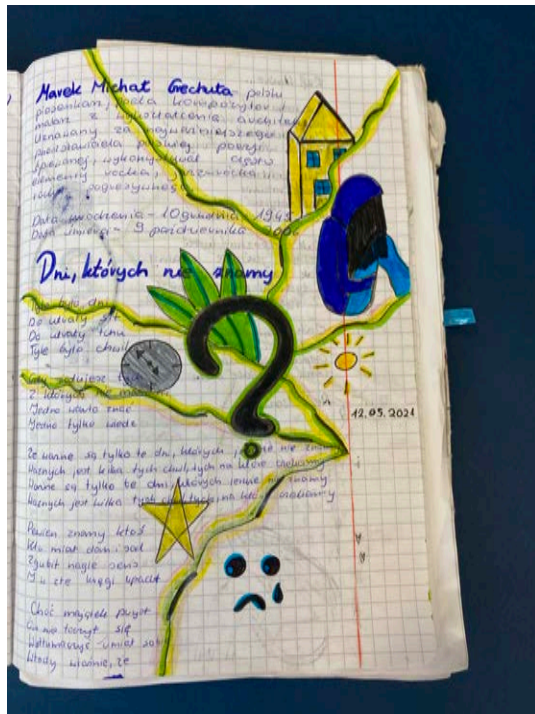 Marek Michał Grechuta polski
piosenkarz, poeta kompozytor i
malarz z wykształcenia architekt
Uznawany za najważniejszego
przedstawiciela polskiej poezji
śpiewanej, wykonywał często
elementy rocka, jazzrocka i
Data urodzenia - 10 grudnia 1945
Data śmierci - 9 października
Dni, których nie znamy
Tyle było dni
Do utraty sił
Do utraty tchu
Tyle było chwil
Gdy żałujesz tych
Z których nie masz
Jedno warto znać
Jedno tylko wiedz
12.05.2021
Że ważne są tylko te dni, których jeszcze nie znamy
Ważnych jest kilka tych chwil, tych na które czekamy
Ważne są tylko te dni, których jeszcze nie znamy
Ważnych jest kilka tych chwil, tych, na które czekamy
Pewien znany ktoś
Kto miał dom i sad
Zgubił nagle sens
I w złe kręgi wpadł
Choć majątek prysł
On nie stoczył się
Wytłumaczyć umiał sobie
Wtedy właśnie, że